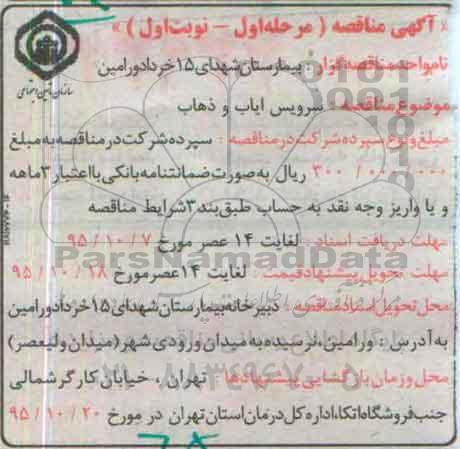 « آگهی مناقصه ( مرحله اول – نوبت اول ) »
نام واحد مناقصه گزار : بیمارستان شهدای ۱۵ خرداد ورامین
سازمان تامین اجتماعی
موضوع مناقصه : سرویس ایاب و ذهاب
مبلغ و نوع سپرده شرکت در مناقصه : سپرده شرکت در مناقصه به مبلغ
۳۰۰ / ۰۰۰ / ۰۰۰ ریال به صورت ضمانتنامه بانکی با اعتبار ۳ ماهه
و یا واریز وجه نقد به حساب طبق بند ۳ شرایط مناقصه
مهلت دریافت اسناد : لغایت ۱۴ عصر مورخ ۷ / ۱۰ / ۹۵
ParsNamadData
مهلت تحویل پیشنهاد قیمت : لغایت ۱۴ عصر مورخ ۱۸ / ۱۰ / ۹۵
محل تحویل اسناد مناقصه : دبیرخانه بیمارستان شهدای ۱۵ خرداد ورامین
به آدرس : ورامین، نرسیده به میدان ورودی شهر (میدان ولیعصر)
محل و زمان بازگشایی پیشنهادها : تهران ، خیابان کارگر شمالی
جنب فروشگاه اتکا، اداره کل درمان استان تهران در مورخ ۲۰ / ۱۰ / ۹۵